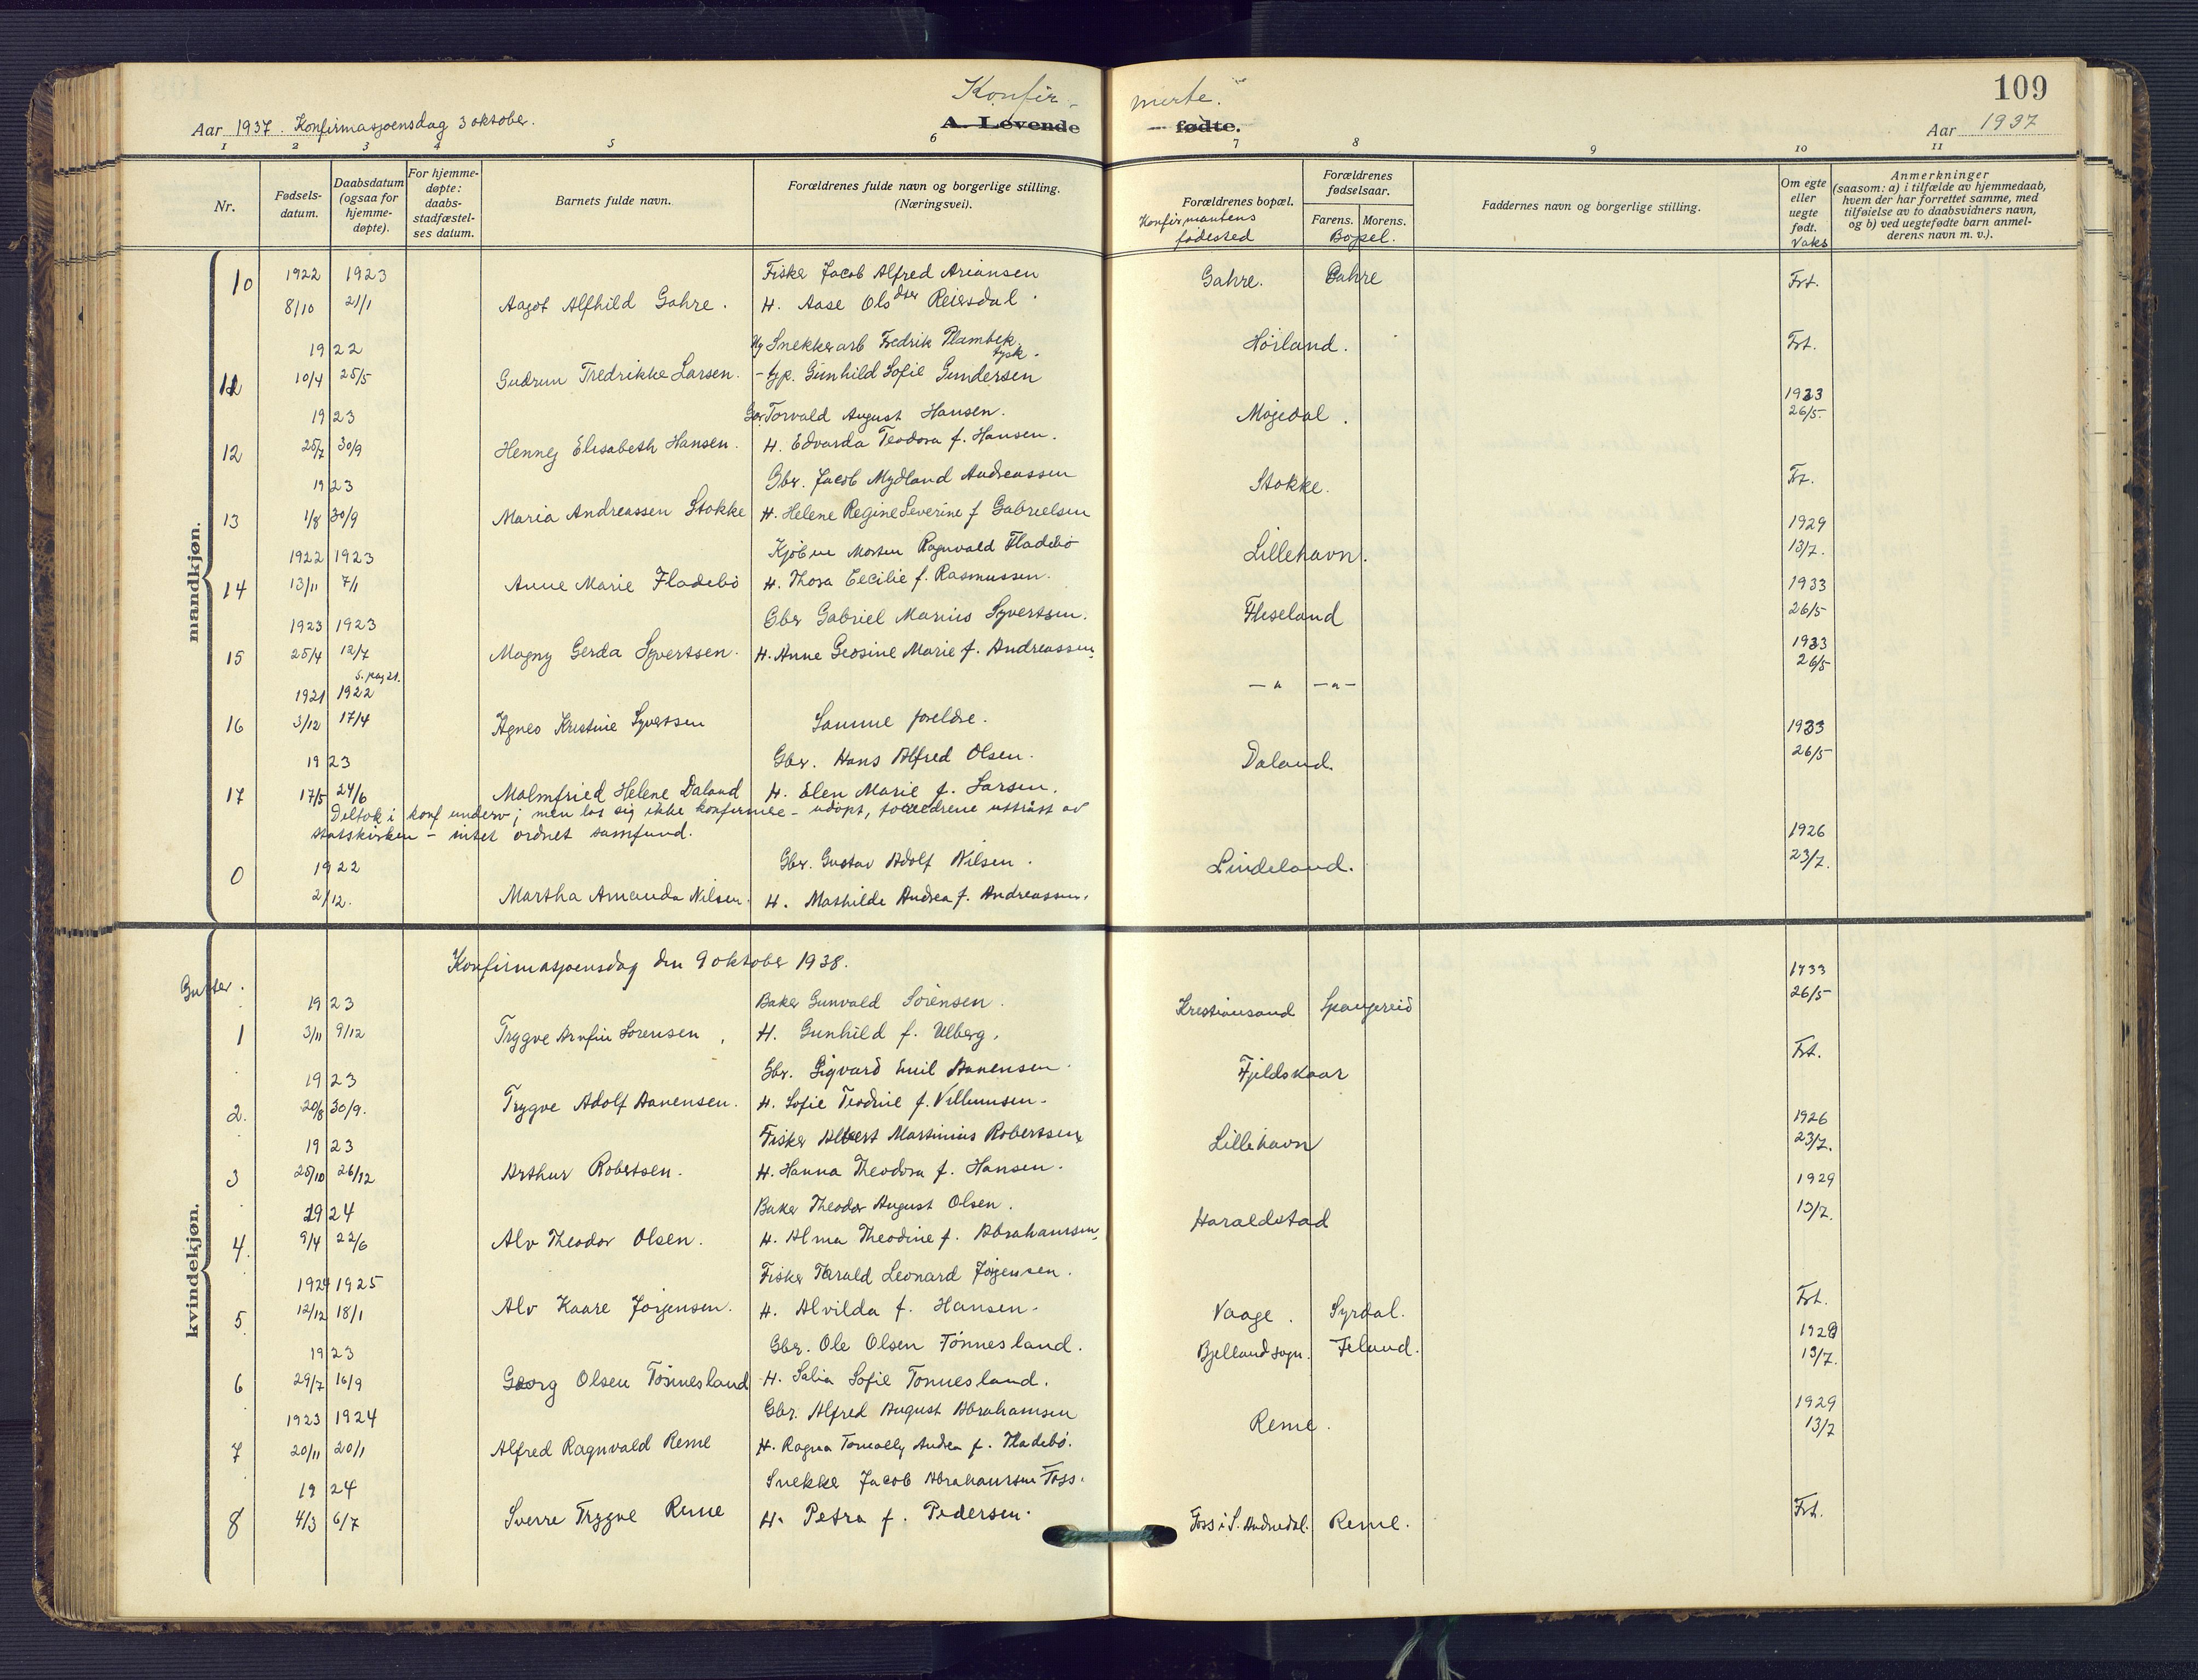 Konfir- merte.
109
Aar 1937. Konfirmasjonsdag 3 oktober.
A. Levende fødte.
Aar 1937
1 2 3 4 5 6 7 8 9 10 11
Nr.
Fødsels-datum.
Daabsdatum (ogsaa for hjemme-døpte).
For hjemme-døpte: daabs-stadfæstel-ses datum.
Barnets fulde navn.
Forældrenes fulde navn og borgerlige stilling. (Næringsvei).
Forældrenes bopæl.
Konfirmantens fødested
Forældrenes fødselsaar.
Farens. Morens.
Bopel.
Faddernes navn og borgerlige stilling.
Om egte eller uegte født.
Vaks
Anmerkninger
(saasom: a) i tilfælde av hjemmedaab, hvem der har forrettet samme, med tilføielse av to daabsvidners navn, og b) ved uegtefødte barn anmel-derens navn m. v.).
mandkjøn.
10 1922 1923 Fisker Jacob Alfred Ariansen Gahre. Gahre Frt.
8/10 21/1 Aagot Alfhild Gahre. H. Aase Olsdter Reiersdal.
1922 Ug Snekkerarb Fredrik Plambek tysk. Høiland. Frt.
11 10/4 25/5 Gudrun Fredrikke Larsen. - tjp. Gunhild Sofie Gundersen
1923 Gbr. Torvald August Hansen. Møgedal. 1933 26/5
12 25/7 30/9 Henny Elisabeth Hansen. H. Edvarda Teodora f. Hansen.
1923 Gbr. Jacob Mydland Andreassen Stokke. Frt.
13 1/8 30/9 Maria Andreassen Stokke H. Helene Regine Severine f Gabrielsen
1922 1923 Kjøbm Morten Ragnvald Fladebø Lillehavn. 1929 13/7.
14 13/11 7/1 Anne Marie Fladebø H. Thora Cecilie f. Rasmussen.
1923 1923 Gbr Gabriel Marius Syvertsen. Fliseland 1933 26/5
15 25/4 12/7 Magny Gerda Syvertsen. H. Anne Geosine Marie f. Andreassen.
s. pag 21.
1921 1922 — " — " — 1933 26/5
16 3/12 17/4 Agnes Kristine Syvertsen Samme foreldre.
1923 Gbr. Hans Alfred Olsen. Daland. 1933 26/5
17 17/5 24/6 Malmfried Helene Daland H. Elen Marie f. Larsen.
Deltok i konf underv; men lot sig ikke konfirmere - udøpt, foreldrene utträdt av
statskirken - intet ordnet samfund.
0 1922 Gbr. Gustav Adolf Nilsen. Lindeland. 1926 23/7.
2/12. Martha Amanda Nilsen. H. Mathilde Andrea f. Andreassen.
kvindekjøn.
Konfirmasjonsdag den 9 oktober 1938.
Gutter.
1923 Baker Gunvald Sörensen. Kristiansand Spangereid 1933 26/5
1 3/11 9/12 Trygve Arnfin Sörensen. H. Gunhild f. Ulberg.
1923 Gbr. Sigvard Emil Aanensen. Fjeldskaar Frt.
2. 20/8 30/9. Trygve Adolf Aanensen. H. Sofie Teodine f. Villumsen.
1923 Fisker Albert Martinius Robertsen Lillehavn 1926 23/7.
3 25/10 26/12 Arthur Robertsen. H. Hanna Theodora f. Hansen.
1924 Baker Theodor August Olsen. Haraldstad 1929 13/7.
4. 9/4 22/6 Alv Theodor Olsen. H. Alma Theodine f. Abrahamsen.
1924 1925 Fisker Tarald Leonard Jörgensen.
5. 12/12 18/1 Alv Kaare Jörgensen. H. Alvilda f. Hansen. Vaage. Syrdal. Frt.
1923 Gbr. Ole Olsen Tönnesland. Bjelland sogn. Jeland. 1929 13/7.
6 29/7 16/9 Georg Olsen Tönnesland H. Salia Sofie Tönnesland.
1923 1924 Gbr. Alfred August Abrahamsen Reme. 1929 13/7
7 20/11 20/1 Alfred Ragnvald Reme H. Ragna Andrea f. Fladebö.
1924 Snekker Jacob Abrahamsen Foss.
8 4/3 6/7 Sverre Trygve Reme H. Petra f. Pedersen. Foss i S. Audnedal. Reme. Frt.